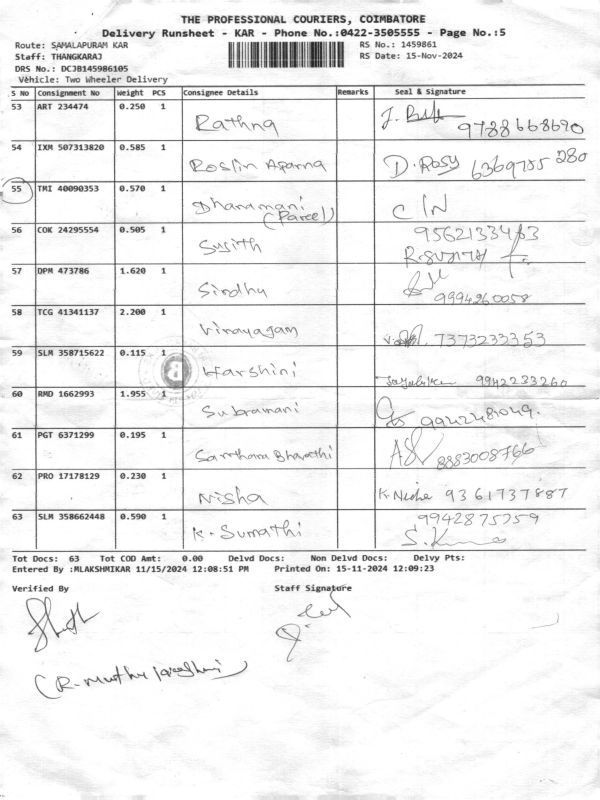 THE PROFESSIONAL COURIERS, COIMBATORE
Delivery Runsheet - KAR - Phone No.:0422-3505555 - Page No.:5
Route: SAMALAPURAM KAR RS No.: 1459861
Staff: THANGKARAJ RS Date: 15-Nov-2024
DRS No.: DCJB145986105
Vehicle: Two Wheeler Delivery
S No Consignment No Weight PCS Consignee Details Remarks Seal & Signature
53 ART 234474 0.250 1 Rathna 9788668690
54 IXM 507313820 0.585 1 Roslin Aparna D. Rosy 6369755280
55 TMI 40090353 0.570 1 Dhanamani (Parcel)
56 COK 24295554 0.505 1 Sujith 9562133463
57 DPM 473786 1.620 1 Sindhu 9994260058
58 TCG 41341137 2.200 1 Vinayagam 7373233353
59 SLM 358715622 0.115 1 Harshini 9942233260
60 RMD 1662993 1.955 1 Subramani 9942481049.
61 PGT 6371299 0.195 1 Bharathi 8883008766
62 PRO 17178129 0.230 1 Nisha K. Nisha 9361737887
63 SLM 358662448 0.590 1 K. Sumathi 9942875759
Tot Docs: 63 Tot COD Amt: 0.00 Delvd Docs: Non Delvd Docs: Delvy Pts:
Entered By :MLAKSHMIKAR 11/15/2024 12:08:51 PM Printed On: 15-11-2024 12:09:23
Verified By Staff Signature